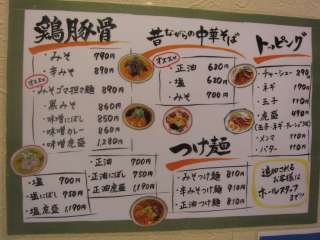 鶏豚骨
・みそ 790円
・辛みそ 890円
オススメ
・みそゴマ担々麺 890円
・黒みそ 860円
・味噌にぼし 850円
・味噌カレー 860円
・味噌虎盛 1,280円
・塩 700円
・塩にぼし 750円
・塩虎盛 1,190円
・正油 700円
・正油にぼし 750円
・正油虎盛 1,190円
昔ながらの中華そば
オススメ
・正油 620円
・塩 620円
・みそ 700円
つけ麺
・みそつけ麺 810円
・辛みそつけ麺 910円
・正油つけ麺 810円
トッピング
・チャーシュー 290円
・ネギ 190円
・玉子 110円
・虎盛 490円
・メンマ 110円
・バター 110円
追加される
お客様は
ホールスタッフ
まで!!